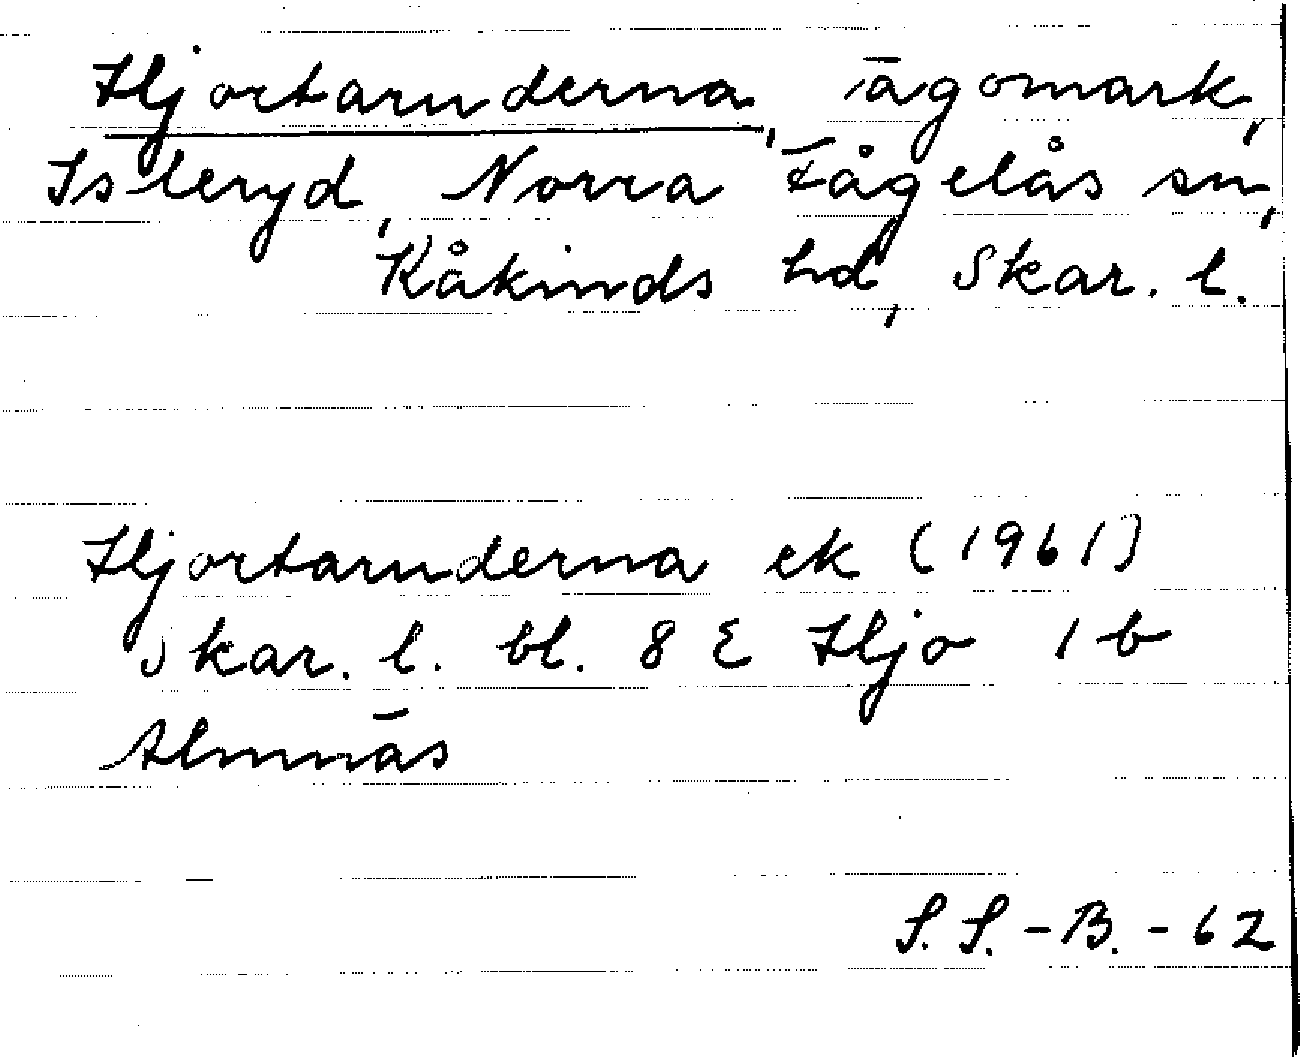 Hjortarnderna, ägomark,
Isleryd, Norra Fågelås sn,
Kåkinds hd, Skar. l.
Hjortarnderna ek (1961)
Skar. l. bl. 8 E Hjo 1 b
Almnäs
S. S.-B.-62